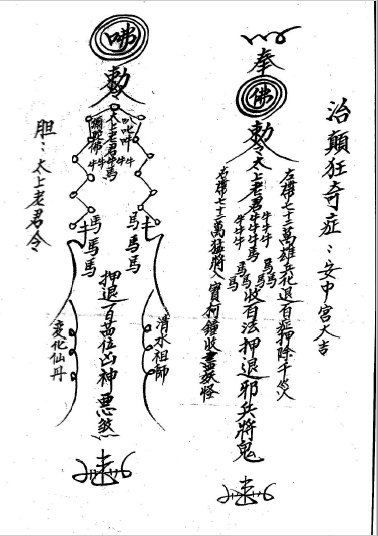 治顛狂奇症：安中宮大吉
奉
佛
勅
太上老君
左擇七十二萬雄兵化退百症押除千災
右擇七十二萬猛將入寶柯鐘收盡妖怪
牛牛牛牛牛牛牛
馬馬馬馬馬馬
收百法押退邪兵將鬼
咈
勅
太上老君
彌陀佛
牛牛牛牛
馬
馬馬馬
馬馬馬
押退百萬位凶神惡煞
清水祖師
變化仙丹
胆：太上老君令